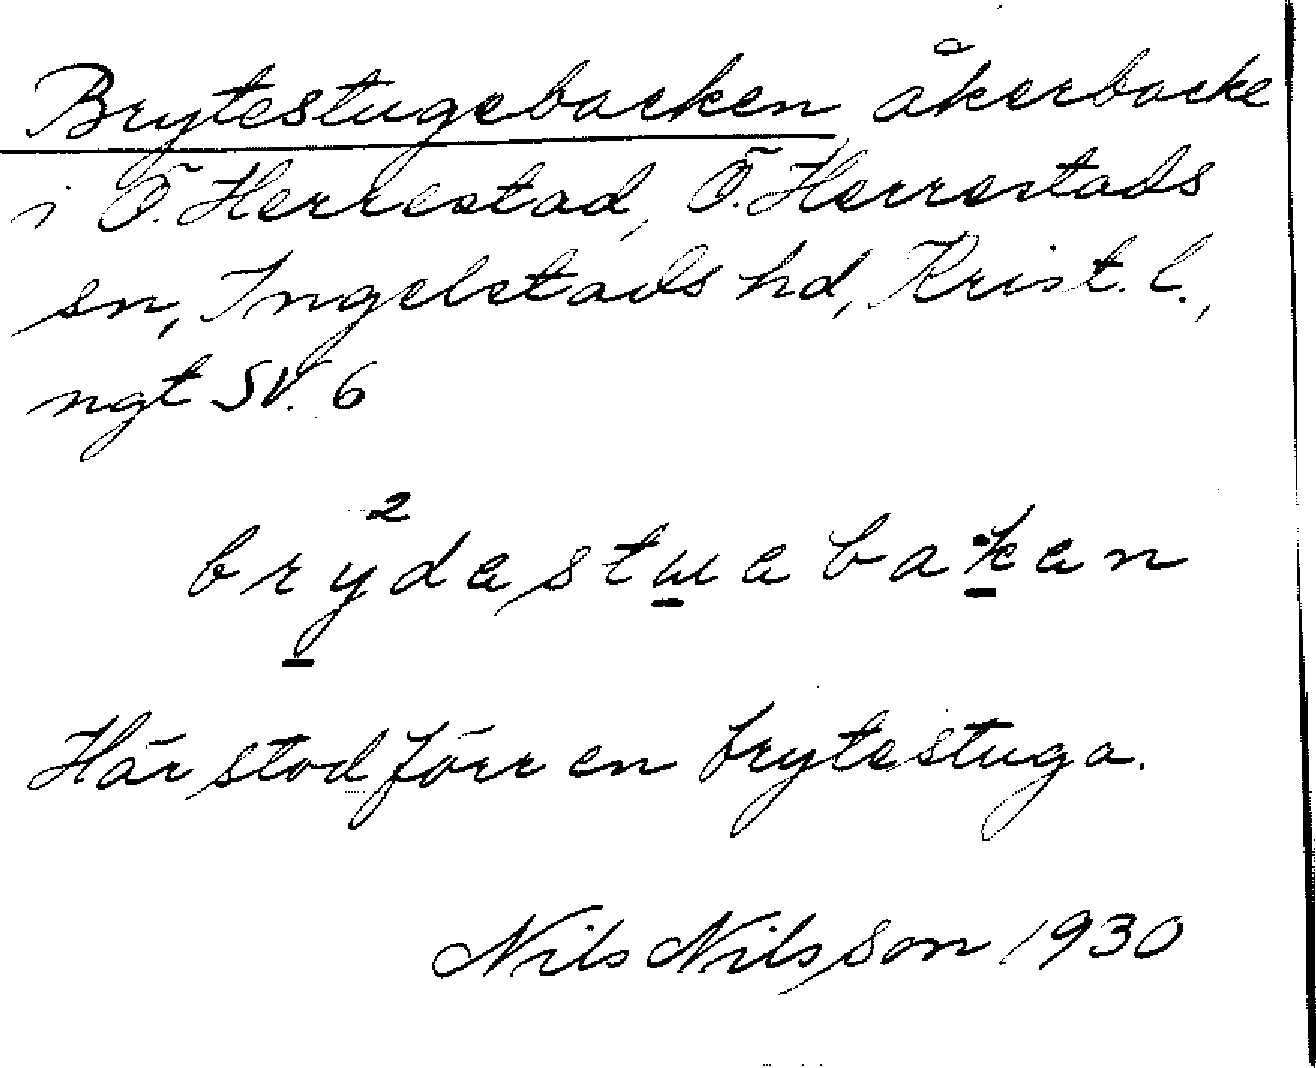 Brytestugebacken åkerbacke
i Ö. Herrestad, Ö. Herrestads
sn, Ingelstads hd, Krist. l.,
ngt SV. 6
bry²dastuabakan
Här stod förr en brytestuga.
Nils Nilsson 1930